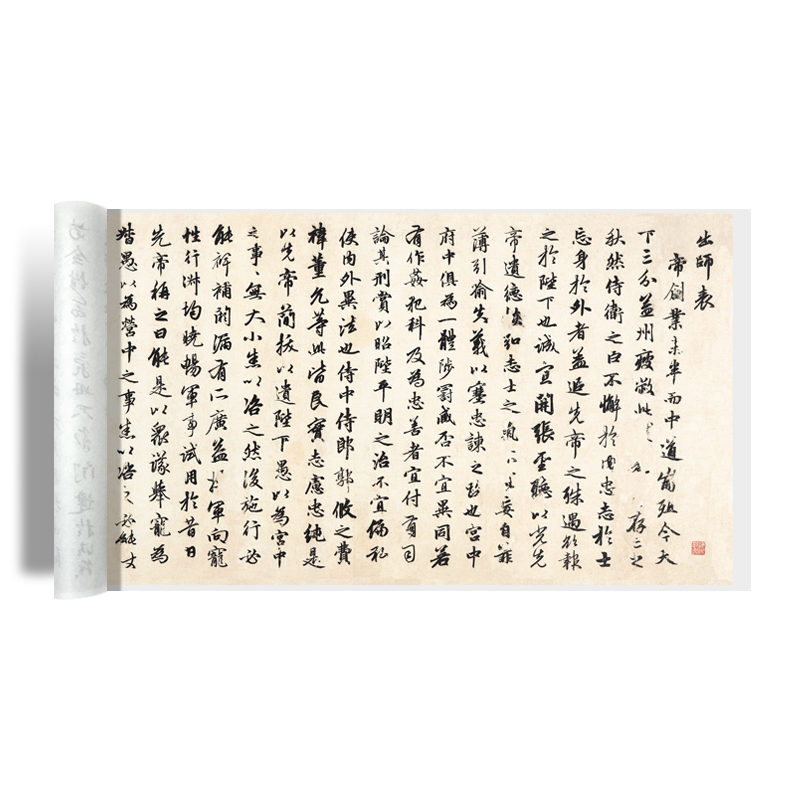 出師表
帝創業未半而中道崩殂今天
下三分益州疲敝此存亡之
秋然侍衛之臣不懈於內忠志於士
忘身於外者蓋追先帝之殊遇欲報
之於陛下也誠宜開張聖聽以光先
帝遺德恢弘志士之氣不宜妄自菲
薄引喻失義以塞忠諫之路也宮中
府中俱為一體陟罰臧否不宜異同若
有作姦犯科及為忠善者宜付有司
論其刑賞以昭陛平明之治不宜偏私
使內外異法也侍中侍郎郭攸之費
禕董允等此皆良實志慮忠純是
以先帝簡拔以遺陛下愚以為宮中
之事〻無大小悉以咨之然後施行必
能裨補闕漏有所廣益將軍向寵
性行淑均曉暢軍事試用於昔日
先帝稱之曰能是以眾議舉寵為
督愚以為營中之事悉以咨之必能